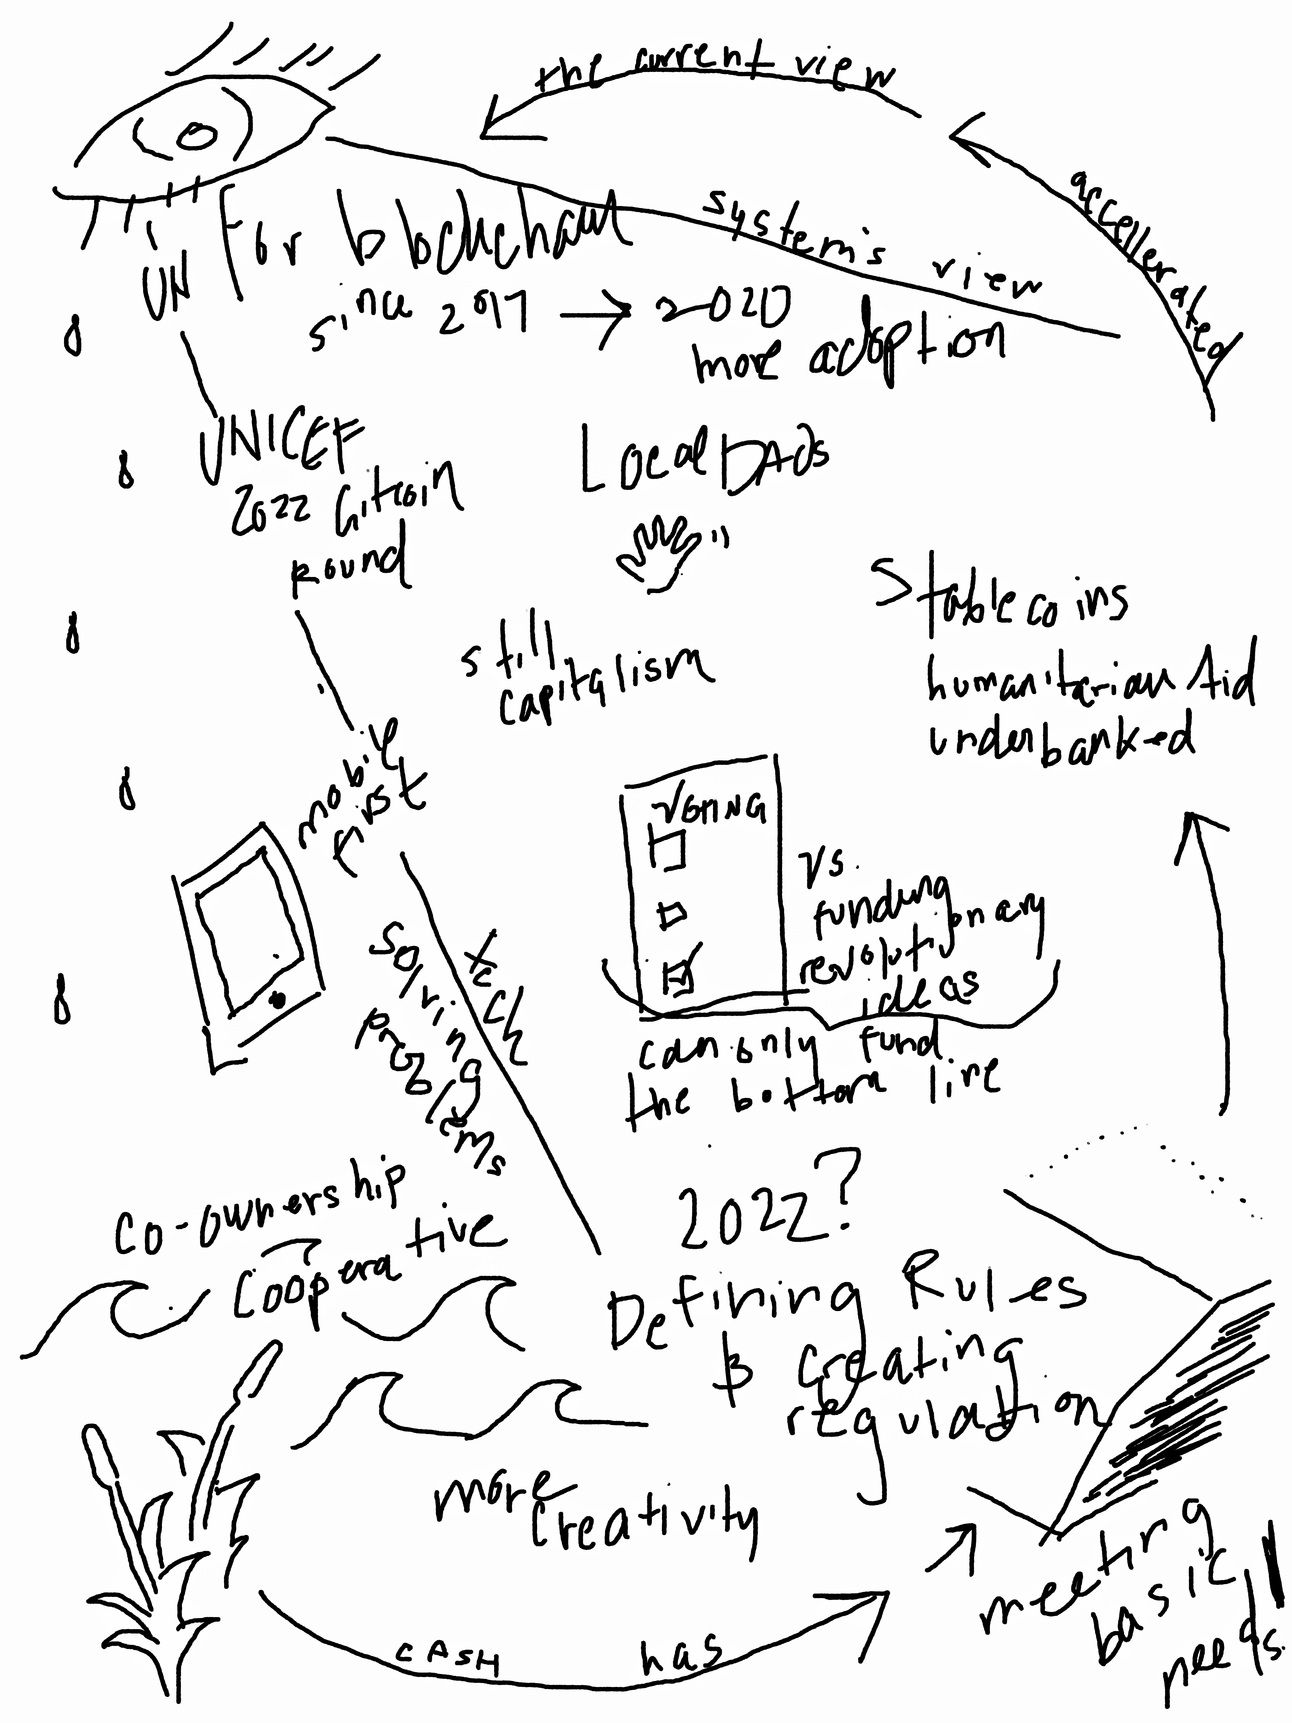 the current view
accellerated
system's view
UN for blockchain
since 2017 → 2020
more adoption
UNICEF
2022 Gitcoin
round
Local DAOs
still
capitalism
Stablecoins
humanitarian Aid
underbanked
mobile
first
VOTING
vs
funding
revolutionary
ideas
can only fund
the bottom line
tech
solving
problems
co-ownership
cooperative
2022?
Defining Rules
& creating
regulation
more
creativity
CASH has
meeting
basic
needs